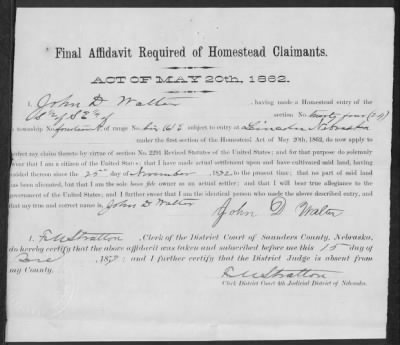 Final Affidavit Required of Homestead Claimants.
ACT OF MAY 20th, 1862.
I, John D Walter, having made a Homestead entry of the
section No. twenty four (24)
in township No. fourteen N, of range No. six (6) E subject to entry at Lincoln Nebraska
under the first section of the Homestead Act of May 20th, 1862, do now apply to
perfect my claim thereto by virtue of section No. 2291 Revised Statutes of the United States; and for that purpose do solemnly
swear that I am a citizen of the United States; that I have made actual settlement upon and have cultivated said land, having
resided thereon since the 25th day of November, to the present time; that no part of said
land has been alienated, but that I am the sole bona fide owner as an actual settler; and that I will bear true allegiance to the
government of the United States; and I further swear that I am the identical person who made the above described entry, and
that my true and correct name is John D Walter
John D Walter
I, F M Stratton, Clerk of the District Court of Saunders County, Nebraska,
do hereby certify that the above affidavit was taken and subscribed before me this 15 day of
187 ; and I further certify that the District Judge is absent from
my County.
F M Stratton
Clerk District Court 4th Judicial District of Nebraska.